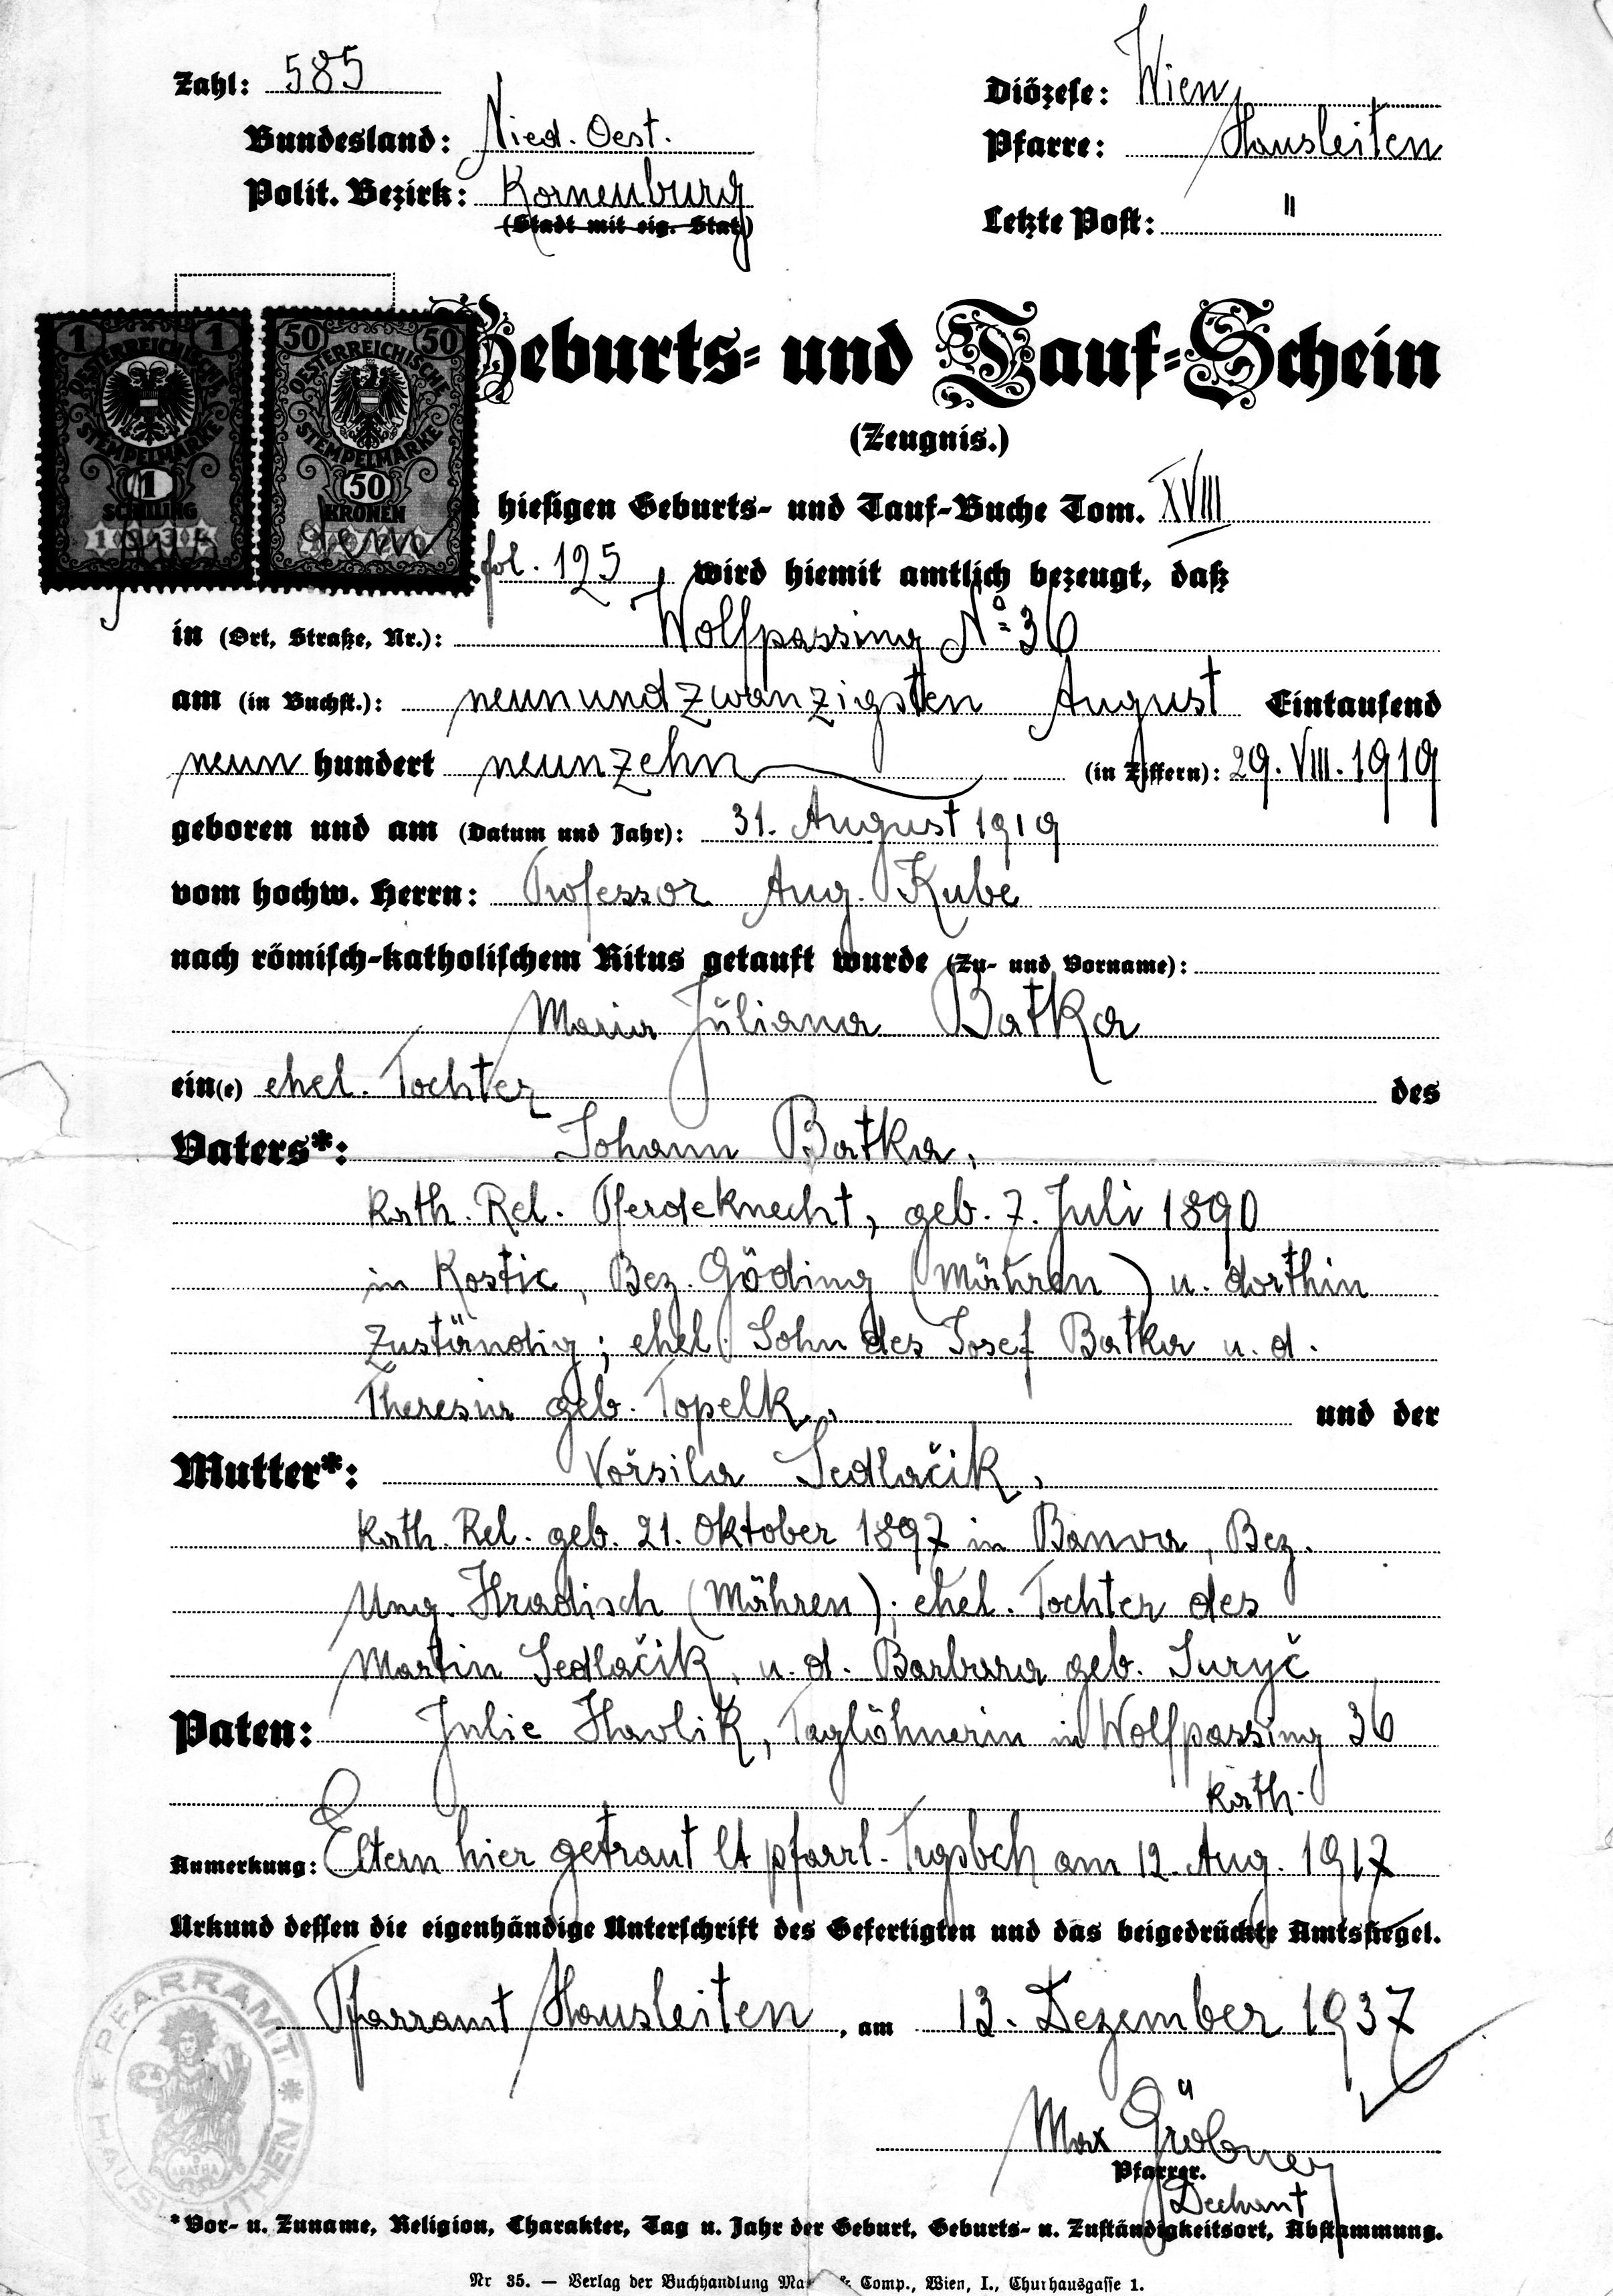 Zahl: 585
Diözese: Wien
Bundesland: Nied. Oest.
Pfarre: Hausleiten
Polit. Bezirk: Korneuburg
(Stadt mit eig. Stat.)
Letzte Post: "
1 1
OESTERREICHISCHE
STEMPELMARKE
1
SCHILLING
50 50
OESTERREICHISCHE
STEMPELMARKE
50
KRONEN
Geburts- und Tauf-Schein
(Zeugnis.)
Aus dem hiesigen Geburts- und Tauf-Buche Tom. XVIII
fol. 125, wird hiemit amtlich bezeugt, daß
in (Ort, Straße, Nr.): Wolfpassing No 36
am (in Buchst.): neunundzwanzigsten August Eintausend
neun hundert neunzehn (in Ziffern): 29. VIII. 1919
geboren und am (Datum und Jahr): 31. August 1919
vom hochw. Herrn: Professor Aug. Kube
nach römisch-katholischem Ritus getauft wurde (Zu- und Vorname):
Maria Juliana Batka
ein(e) ehel. Tochter des
Vaters*: Johann Batka,
kath. Rel. Pferdeknecht, geb. 7. Juli 1890
in Kostic, Bez. Göding (Mähren) u. dorthin
zuständig; ehel. Sohn des Josef Batka u. d.
Theresia geb. Topelk, und der
Mutter*: Voršila Sedlačik,
kath. Rel. geb. 21. Oktober 1897 in Banva, Bez.
Ung. Hradisch (Mähren); ehel. Tochter des
Martin Sedlačik, u. d. Barbara geb. Juryč
Paten: Julie Havlik, Taglöhnerin in Wolfpassing 36
kath.
Anmerkung: Eltern hier getraut lt pfarrl. Trgsbch am 12. Aug. 1917
Urkund dessen die eigenhändige Unterschrift des Gefertigten und das beigedrückte Amtssiegel.
Pfarramt Hausleiten, am 13. Dezember 1937
PFARRAMT HAUSLEITHEN
AGATHA
Max Gröbner
Pfarrer.
Dechant
*Vor- u. Zuname, Religion, Charakter, Tag u. Jahr der Geburt, Geburts- u. Zuständigkeitsort, Abstammung.
Nr 35. — Verlag der Buchhandlung & Comp., Wien, I., Churhausgasse 1.